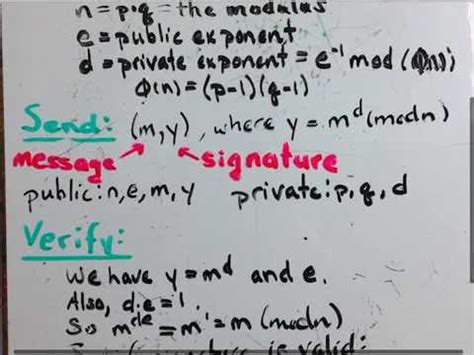 n = p·q = the modulus
e = public exponent
d = private exponent = e⁻¹ mod (Φ(n))
Φ(n) = (p-1)(q-1)
Send: (m,y), where y = mᵈ (mod n)
message signature
public: n,e,m,y private: p,q,d
Verify:
We have y = mᵈ and e.
Also, d·e = 1.
So mᵈᵉ = m¹ = m (mod n)
is valid: